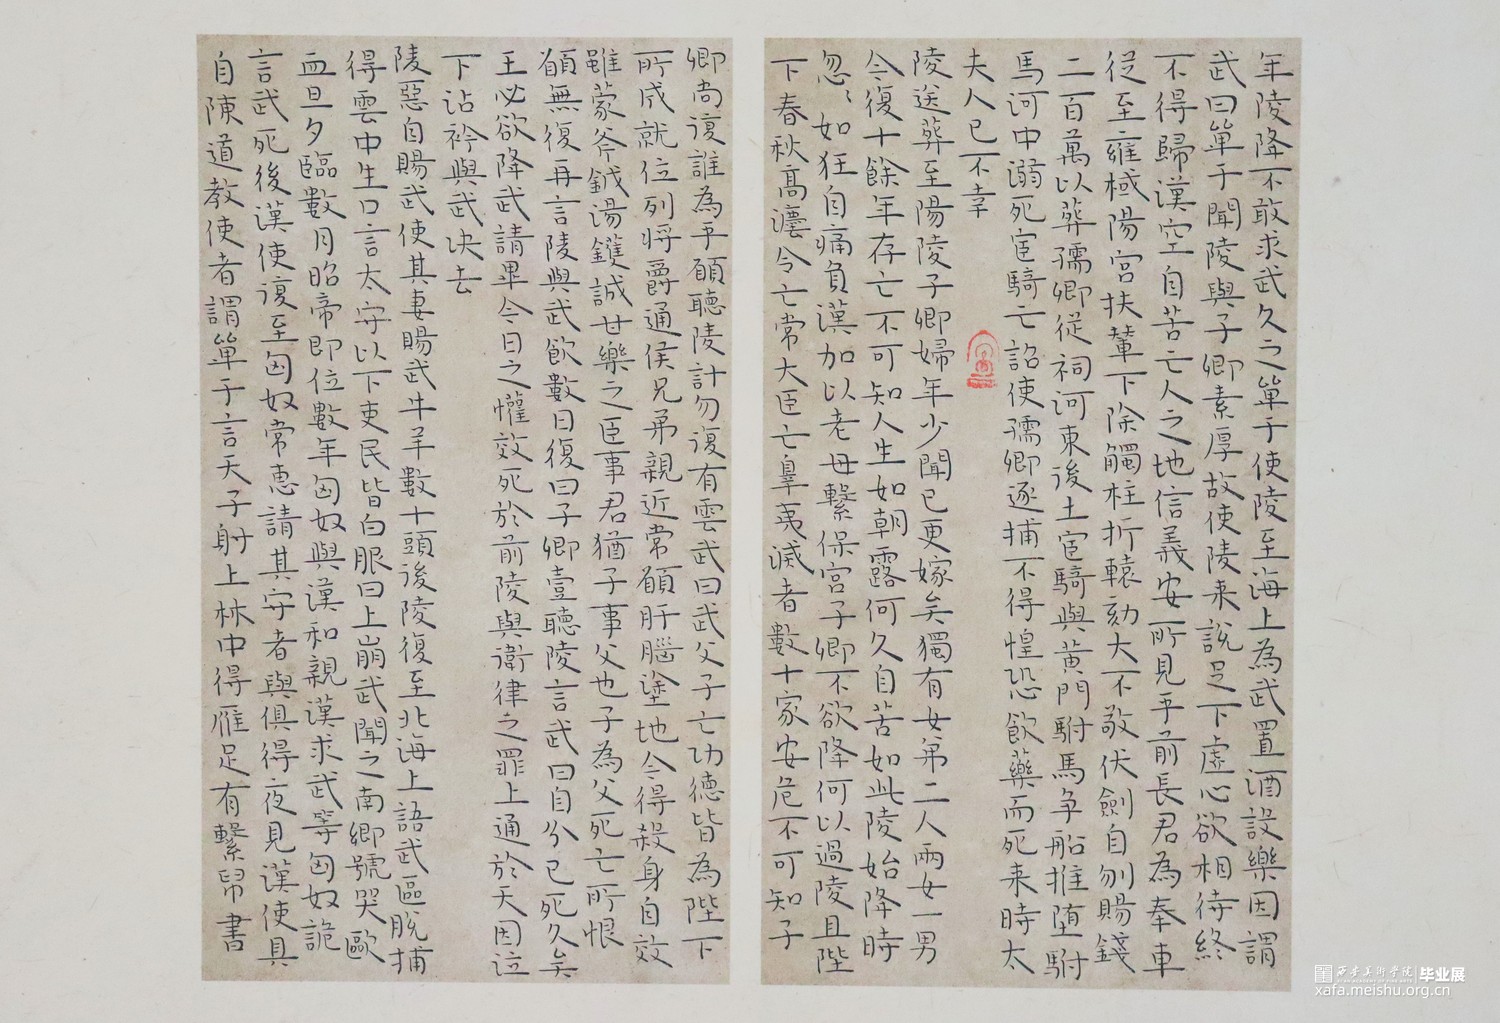 年陵降不敢求武久之單于使陵至海上為武置酒設樂因謂
武曰單于聞陵與子卿素厚故使陵来說足下虛心欲相待終
不得歸漢空自苦亡人之地信義安所見乎前長君為奉車
從至雍棫陽宮扶輦下除觸柱折轅劾大不敬伏劍自刎賜錢
二百萬以葬孺卿從祠河東後土宦騎與黄門駙馬争船推堕駙
馬河中溺死宦騎亡詔使孺卿逐捕不得惶恐飲藥而死来時太
夫人已不幸
陵送葬至陽陵子卿婦年少聞已更嫁矣獨有女弟二人兩女一男
今復十餘年存亡不可知人生如朝露何久自苦如此陵始降時
忽忽如狂自痛負漢加以老母繫保宮子卿不欲降何以過陵且陛
下春秋高法令亡常大臣亡辠夷滅者數十家安危不可知子
卿尚復誰為乎願聽陵計勿復有雲武曰武父子亡功德皆為陛下
所成就位列將爵通侯兄弟親近常願肝腦塗地今得殺身自效
雖蒙斧鉞湯鑊誠甘樂之臣事君猶子事父也子為父死亡所恨
願無復再言陵與武飲數日復曰子卿壹聽陵言武曰自分已死久矣
王必欲降武請畢今日之懽效死於前陵與衛律之罪上通於天因泣
下沾衿與武决去
陵惡自賜武使其妻賜武牛羊數十頭後陵復至北海上語武區脫捕
得雲中生口言太守以下吏民皆白服曰上崩武聞之南鄉號哭歐
血旦夕臨數月昭帝即位數年匈奴與漢和親漢求武等匈奴詭
言武死後漢使復至匈奴常惠請其守者與俱得夜見漢使具
自陳道教使者謂單于言天子射上林中得雁足有繫帛書
西安美術學院 毕业展
xafa.meishu.org.cn